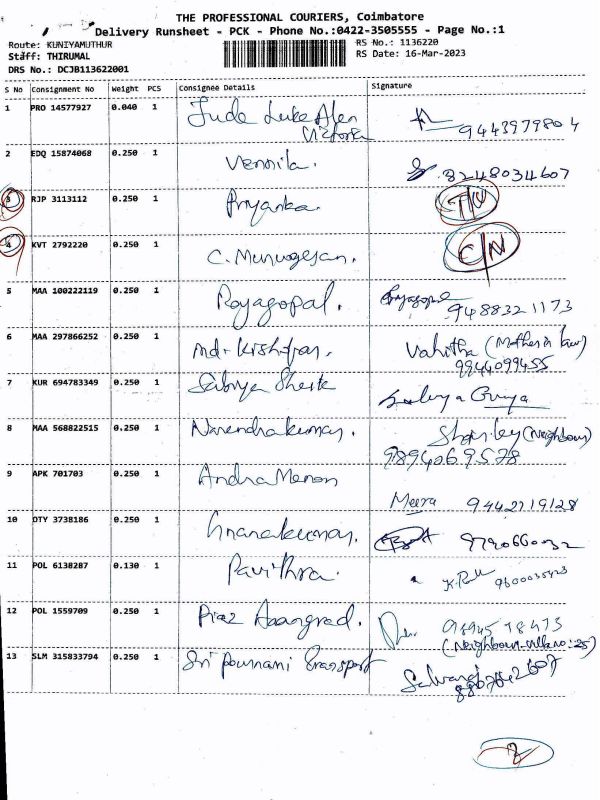 THE PROFESSIONAL COURIERS, Coimbatore
Delivery Runsheet - PCK - Phone No.:0422-3505555 - Page No.:1
Route: KUNIYAMUTHUR RS No.: 1136220
Staff: THIRUMAL RS Date: 16-Mar-2023
DRS No.: DCJB113622001
S No Consignment No Weight PCS Consignee Details Signature
1 PRO 14577927 0.040 1 Jude Luke Alen
Victoria 9443979804
2 EDQ 15874068 0.250 1 Vennila. 8248034607
3 RJP 3113112 0.250 1 Priyanka.
4 KVT 2792220 0.250 1 C. Murugesan. C/N
5 MAA 100222119 0.250 1 Royagopal. 9488321173
6 MAA 297866252 0.250 1 Vahitha (Mother in law)
9944099455
7 KUR 694783349 0.250 1
8 MAA 568822515 0.250 1 Narendrakumar. (Neighbour)
9894069578
9 APK 701703 0.250 1 Andra Menon Meera 9442719128
10 OTY 3738186 0.250 1 Gnanakumar. 9790660032
11 POL 6138287 0.130 1 Pavithra.
12 POL 1559709 0.250 1
13 SLM 315833794 0.250 1 Sri Pournami Transport
2